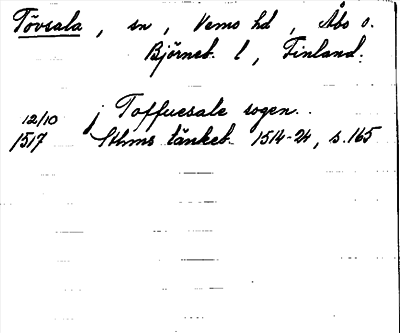 Tövsala, sn, Vemo hd, Åbo o.
Björneb. l, Finland.
12/10 j Toffuesale sogen..
1517 Sthms tänkeb. 1514-24, s.165